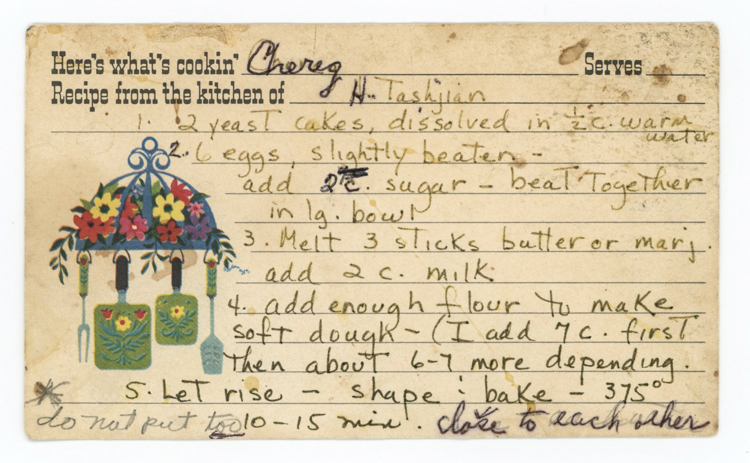 Here's what's cookin' Chereg Serves
Recipe from the kitchen of H. Tashjian
1. 2 yeast cakes, dissolved in ½ c. warm
water
2. 6 eggs, slightly beaten -
add 2 c. sugar - beat together
in lg. bowl
3. Melt 3 sticks butter or marj.
add 2 c. milk
4. add enough flour to make
soft dough - (I add 7 c. first
then about 6-7 more depending.
5. Let rise - shape : bake - 375°
* do not put too 10-15 min. close to each other